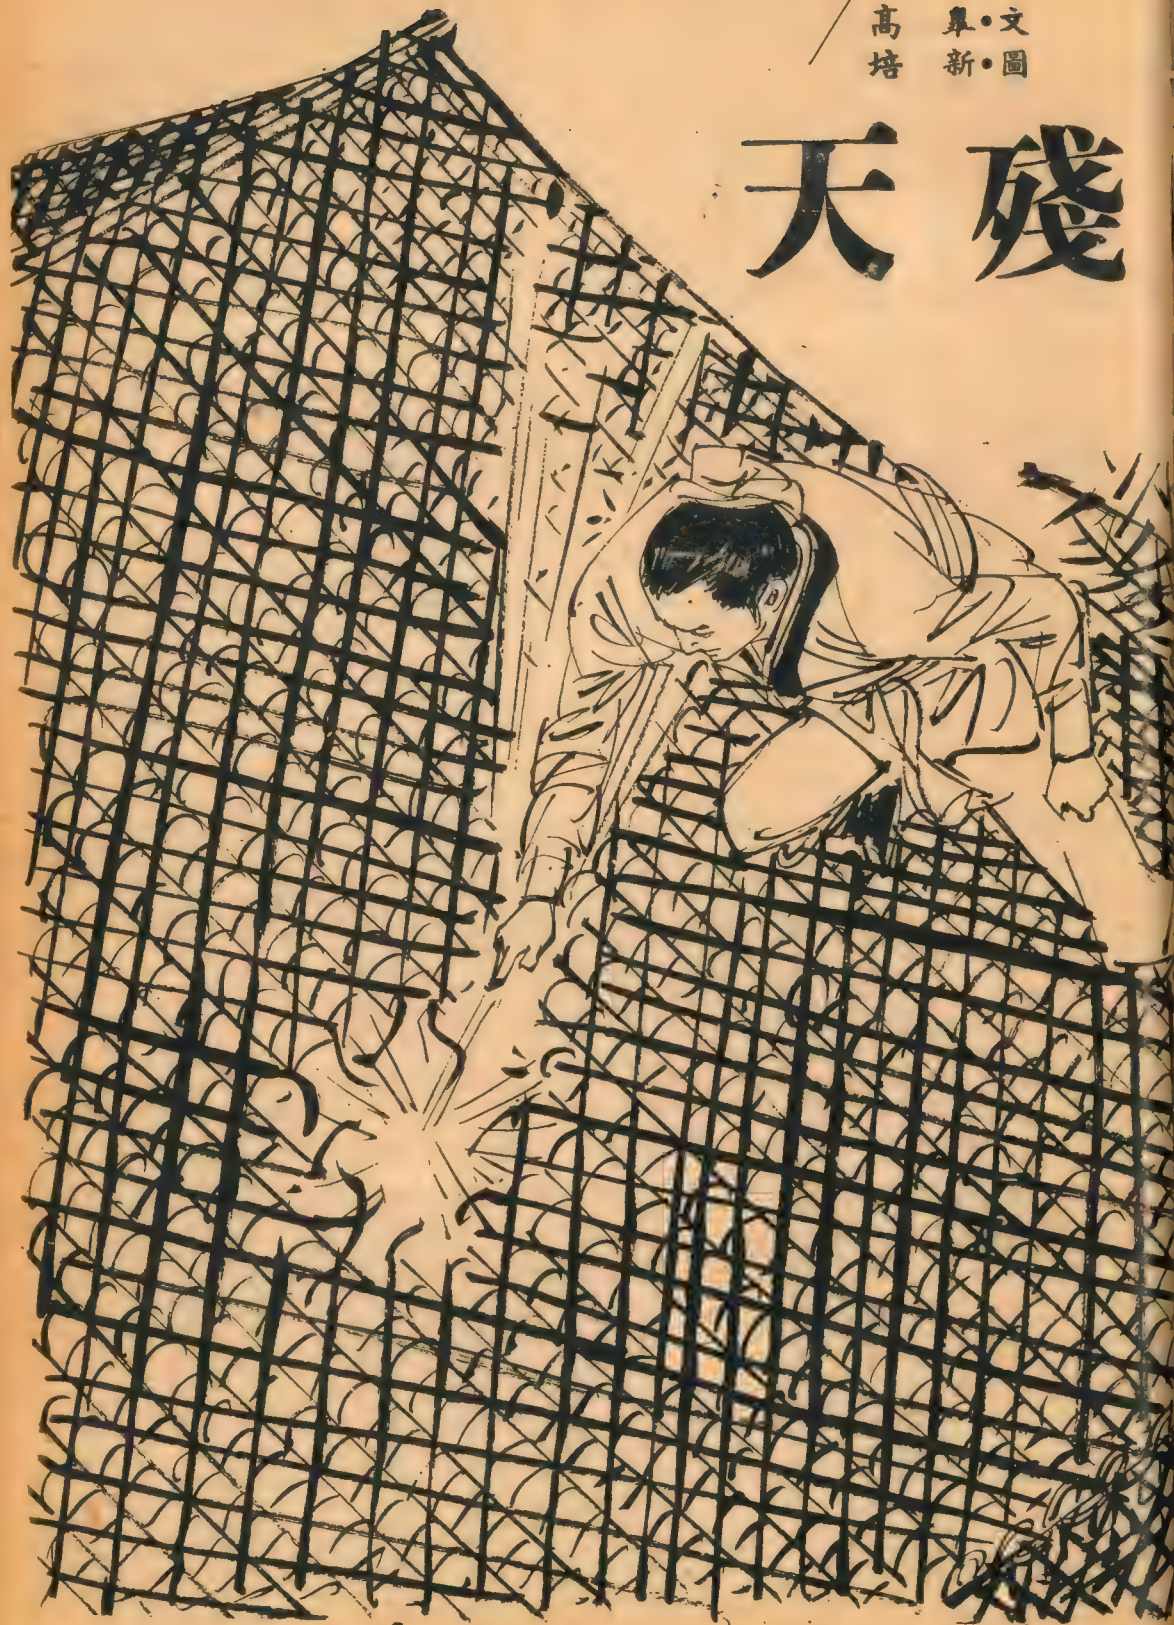 高 臯•文
培 新•圖
天 殘